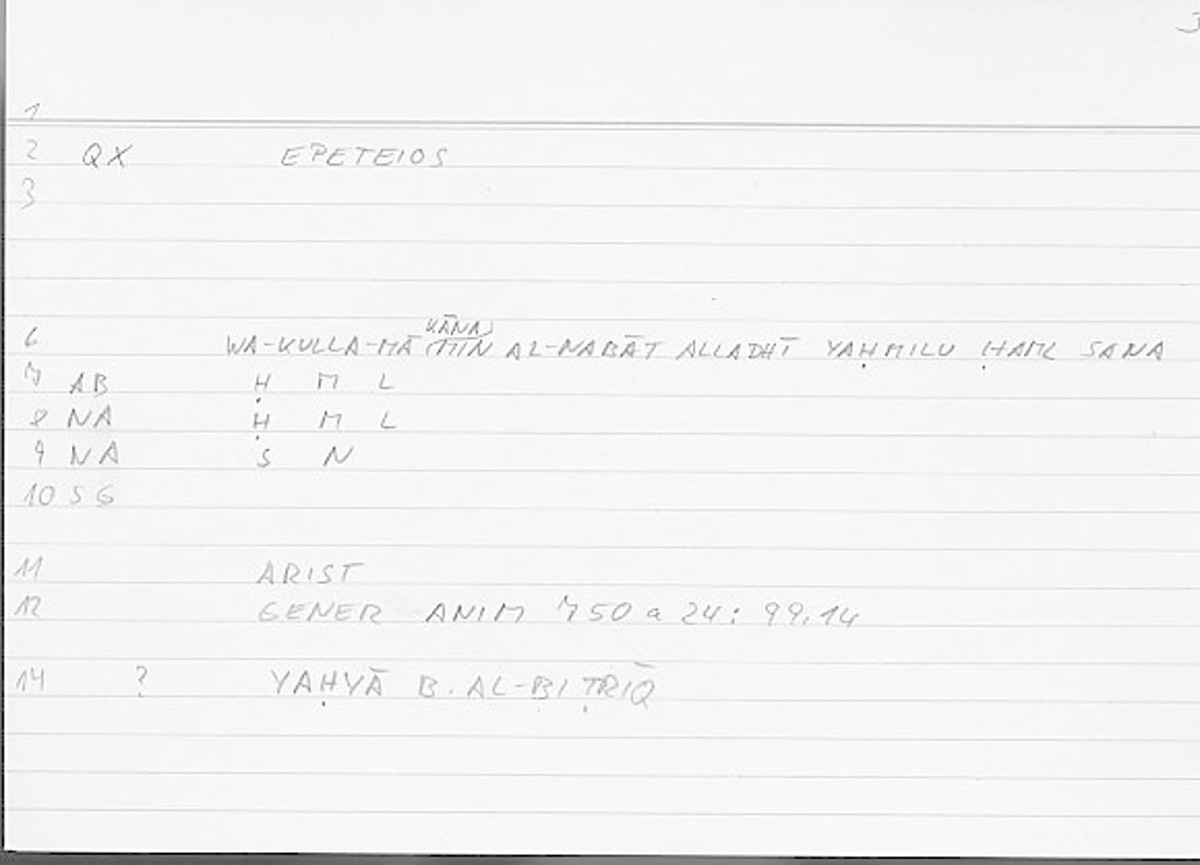 3
1
2 QX EPETEIOS
3
KĀNA
6 WA-KULLA-MĀ MIN AL-NABĀT ALLADHĪ YAḤMILU ḤAML SANA
7 AB Ḥ M L
8 NA Ḥ M L
9 NA S N
10 SG
11 ARIST
12 GENER ANIM 750 a 24: 99,14
14 ? YAḤYĀ B. AL-BIṬRĪQ